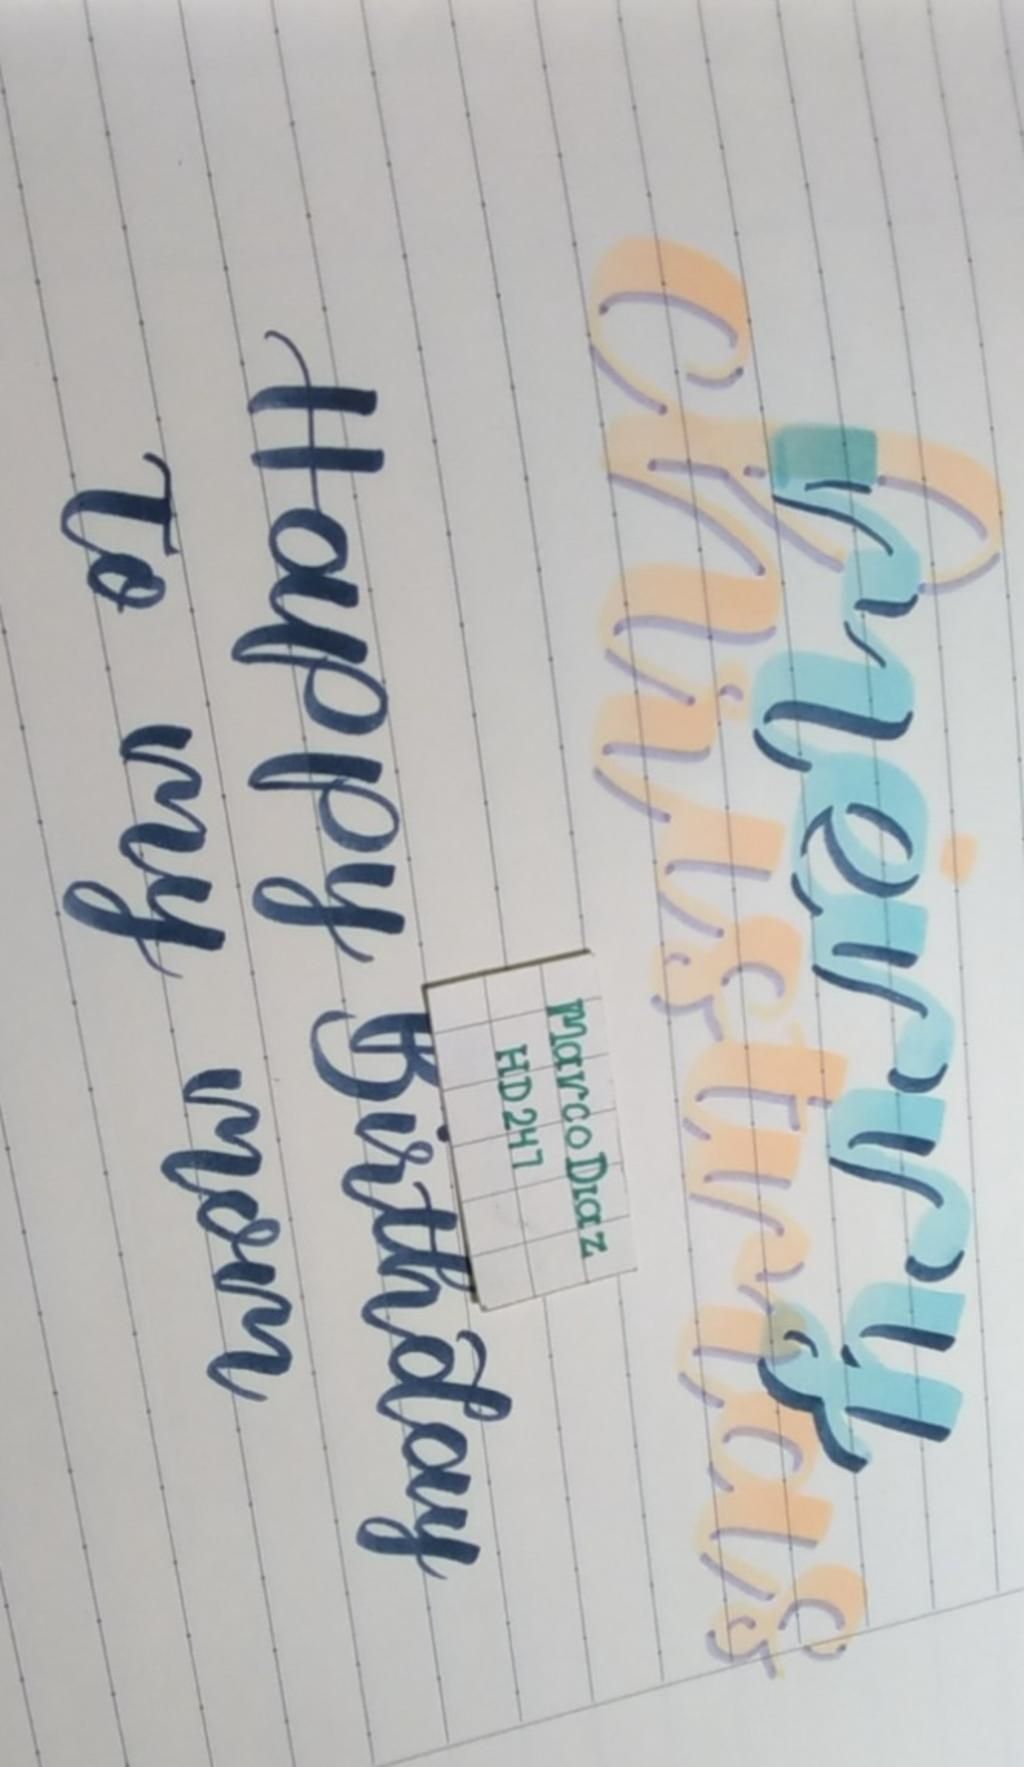 merry
christmas
Marco Diaz
HD247
Happy Birthday
To my mom